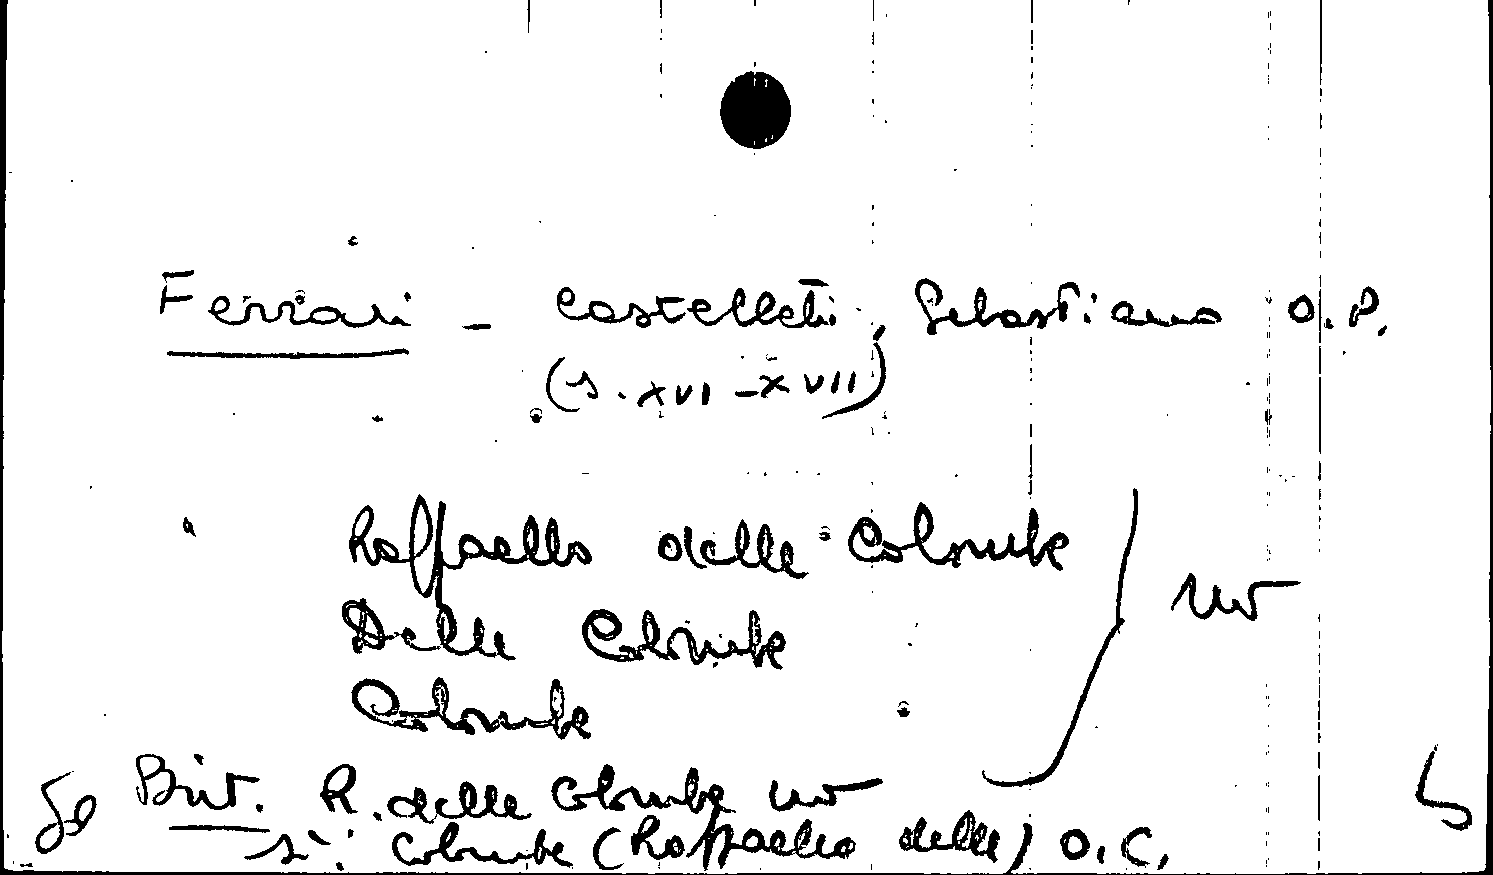 Ferrari - Castelletti, Sebastiano O.P.
(s. XVI - XVII)
Raffaello delle Colombe
Delle Colombe
Colombe
no
Brit. R. delle Colombe no
sì: Colombe (Raffaello delle) O.C.